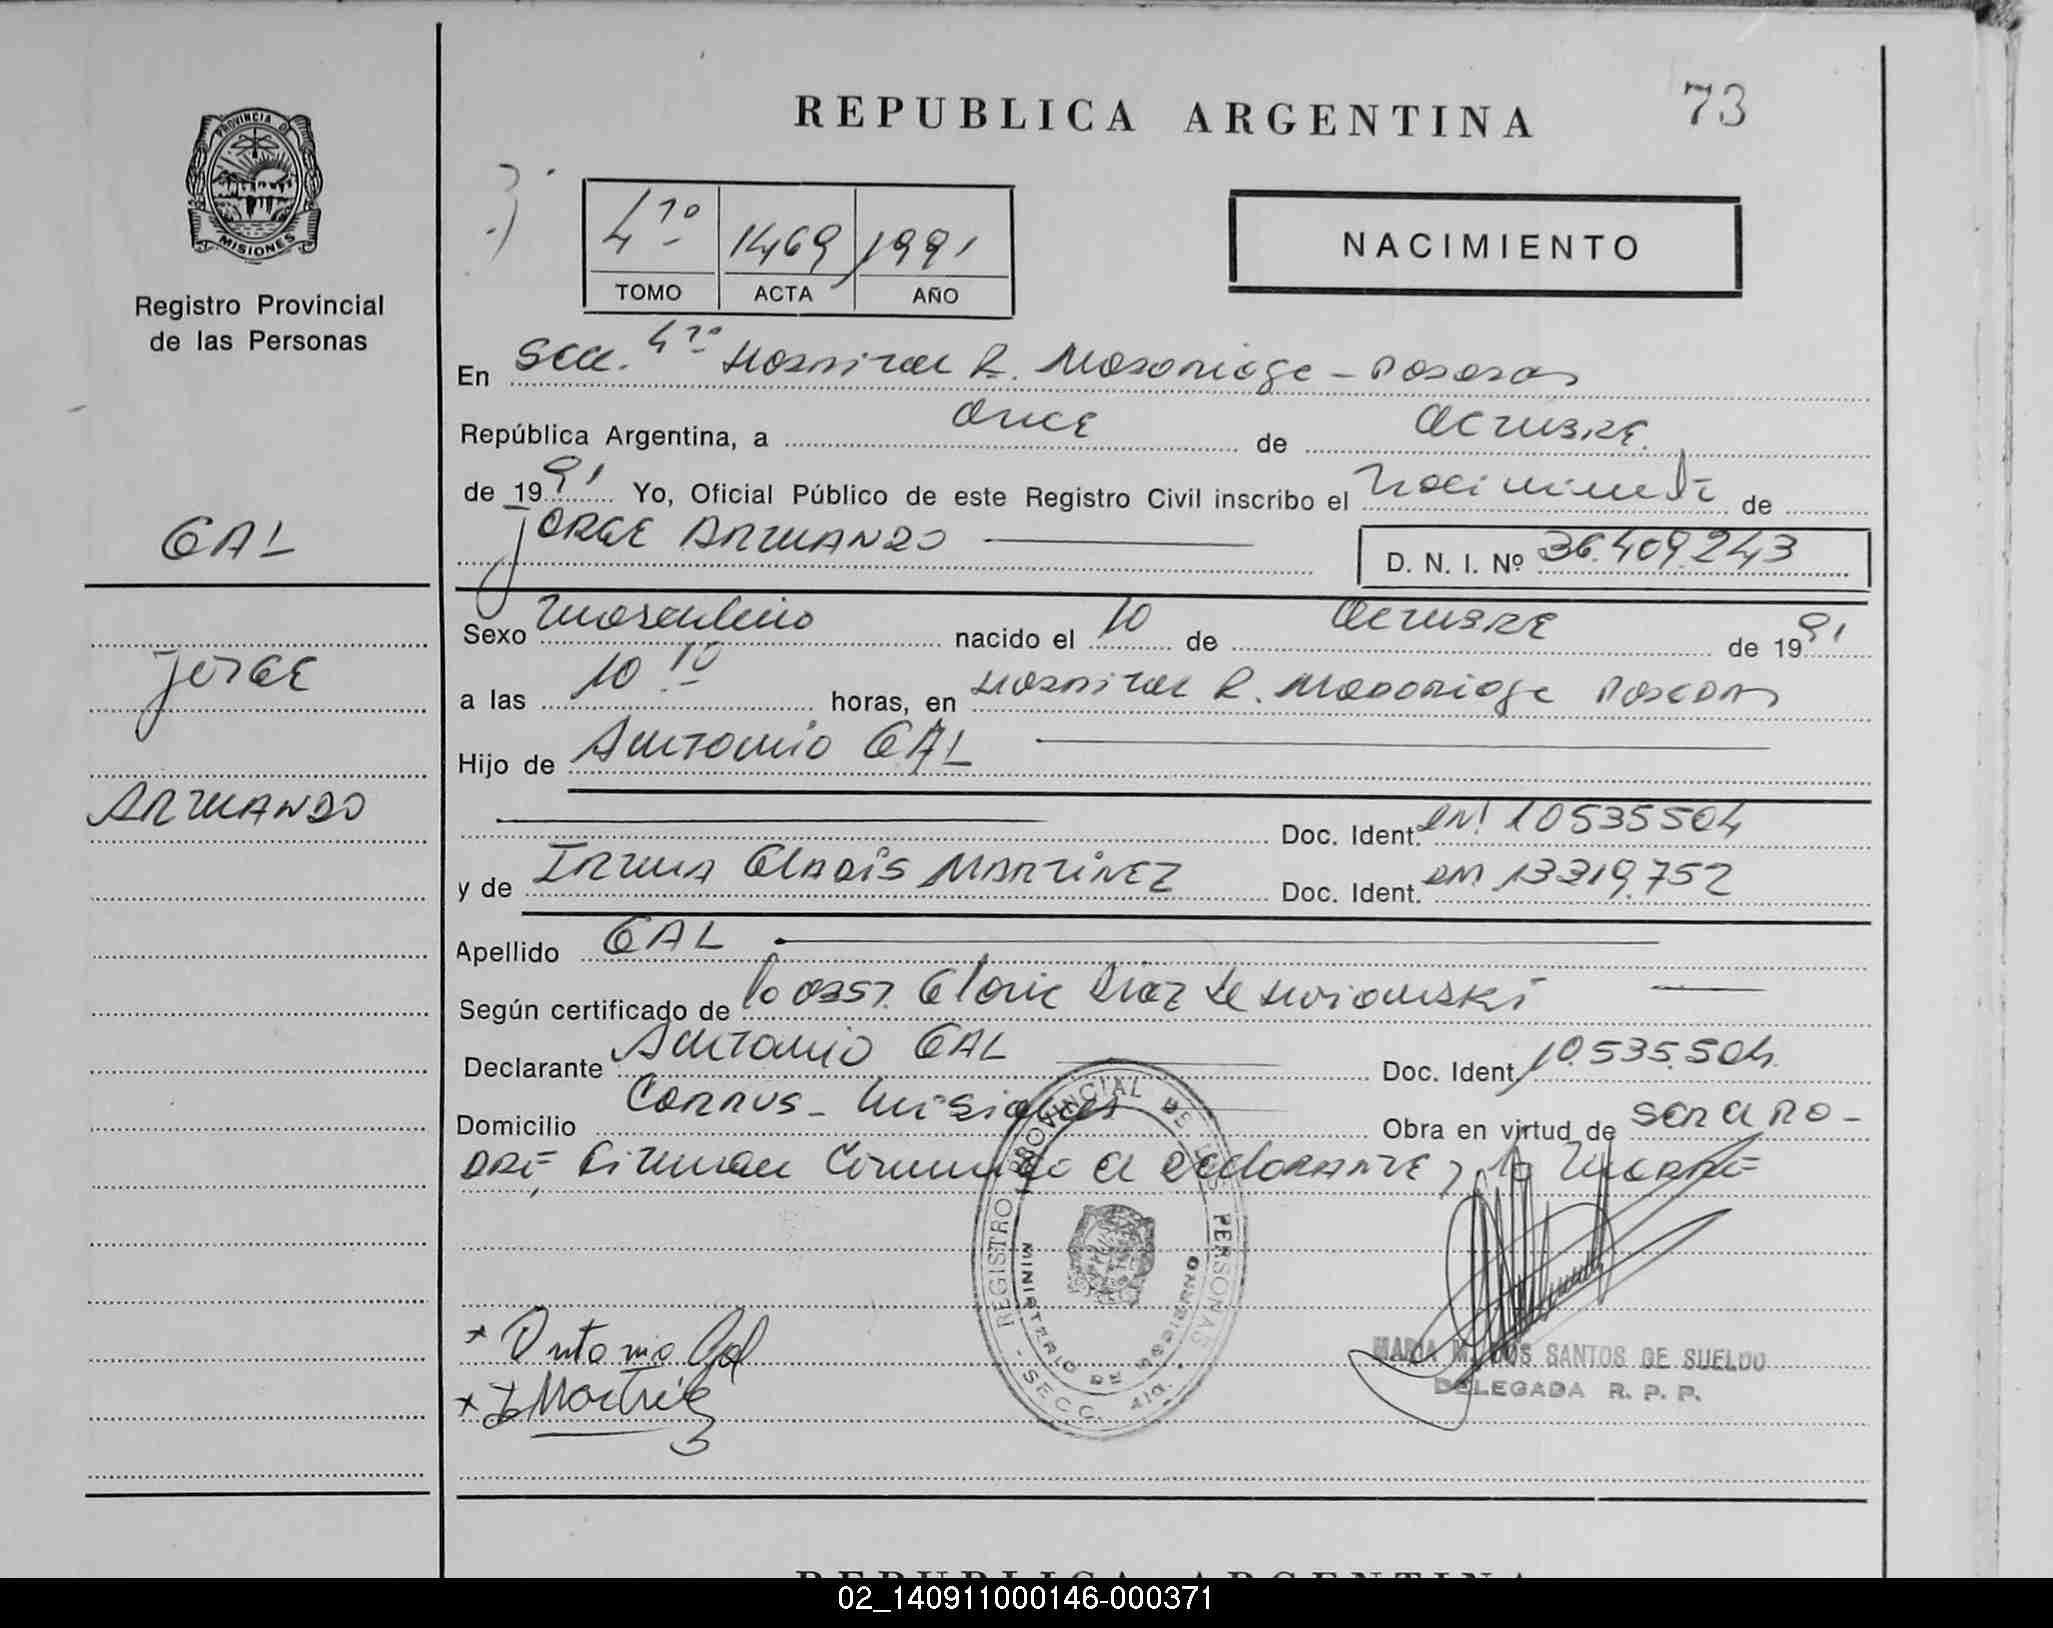 REPUBLICA ARGENTINA
73
PROVINCIA DE
MISIONES
Registro Provincial
de las Personas
4ta 1469 1991
TOMO ACTA AÑO
NACIMIENTO
En Secc. 4ta Hospital R. Madariaga - Posadas
República Argentina, a once de Octubre
de 1991 Yo, Oficial Público de este Registro Civil inscribo el Nacimiento de
JORGE ARMANDO
D. N. I. Nº 36.409.243
GAL
JORGE
ARMANDO
Sexo Masculino nacido el 10 de Octubre de 1991
a las 10 10 horas, en Hospital R. Madariaga Posadas
Hijo de Antonio GAL
Doc. Ident. DNI 10535504
y de IRMA GLADIS MARTINEZ Doc. Ident. DNI 13319.752
Apellido GAL
Según certificado de la Obst. Gloria Diaz de
Declarante Antonio GAL Doc. Ident. 10.535.504
Domicilio Corpus - Misiones Obra en virtud de ser el PA-
DRE, Firman Conmigo el declarante y la Madre
REGISTRO PROVINCIAL DE LAS PERSONAS
MINISTERIO DE GOBIERNO
- SECC. 4ta. -
* Antonio Gal
* I Martinez
MARIA M. DOS SANTOS DE SUELDO
DELEGADA R. P. P.
REPUBLICA ARGENTINA
02_140911000146-000371